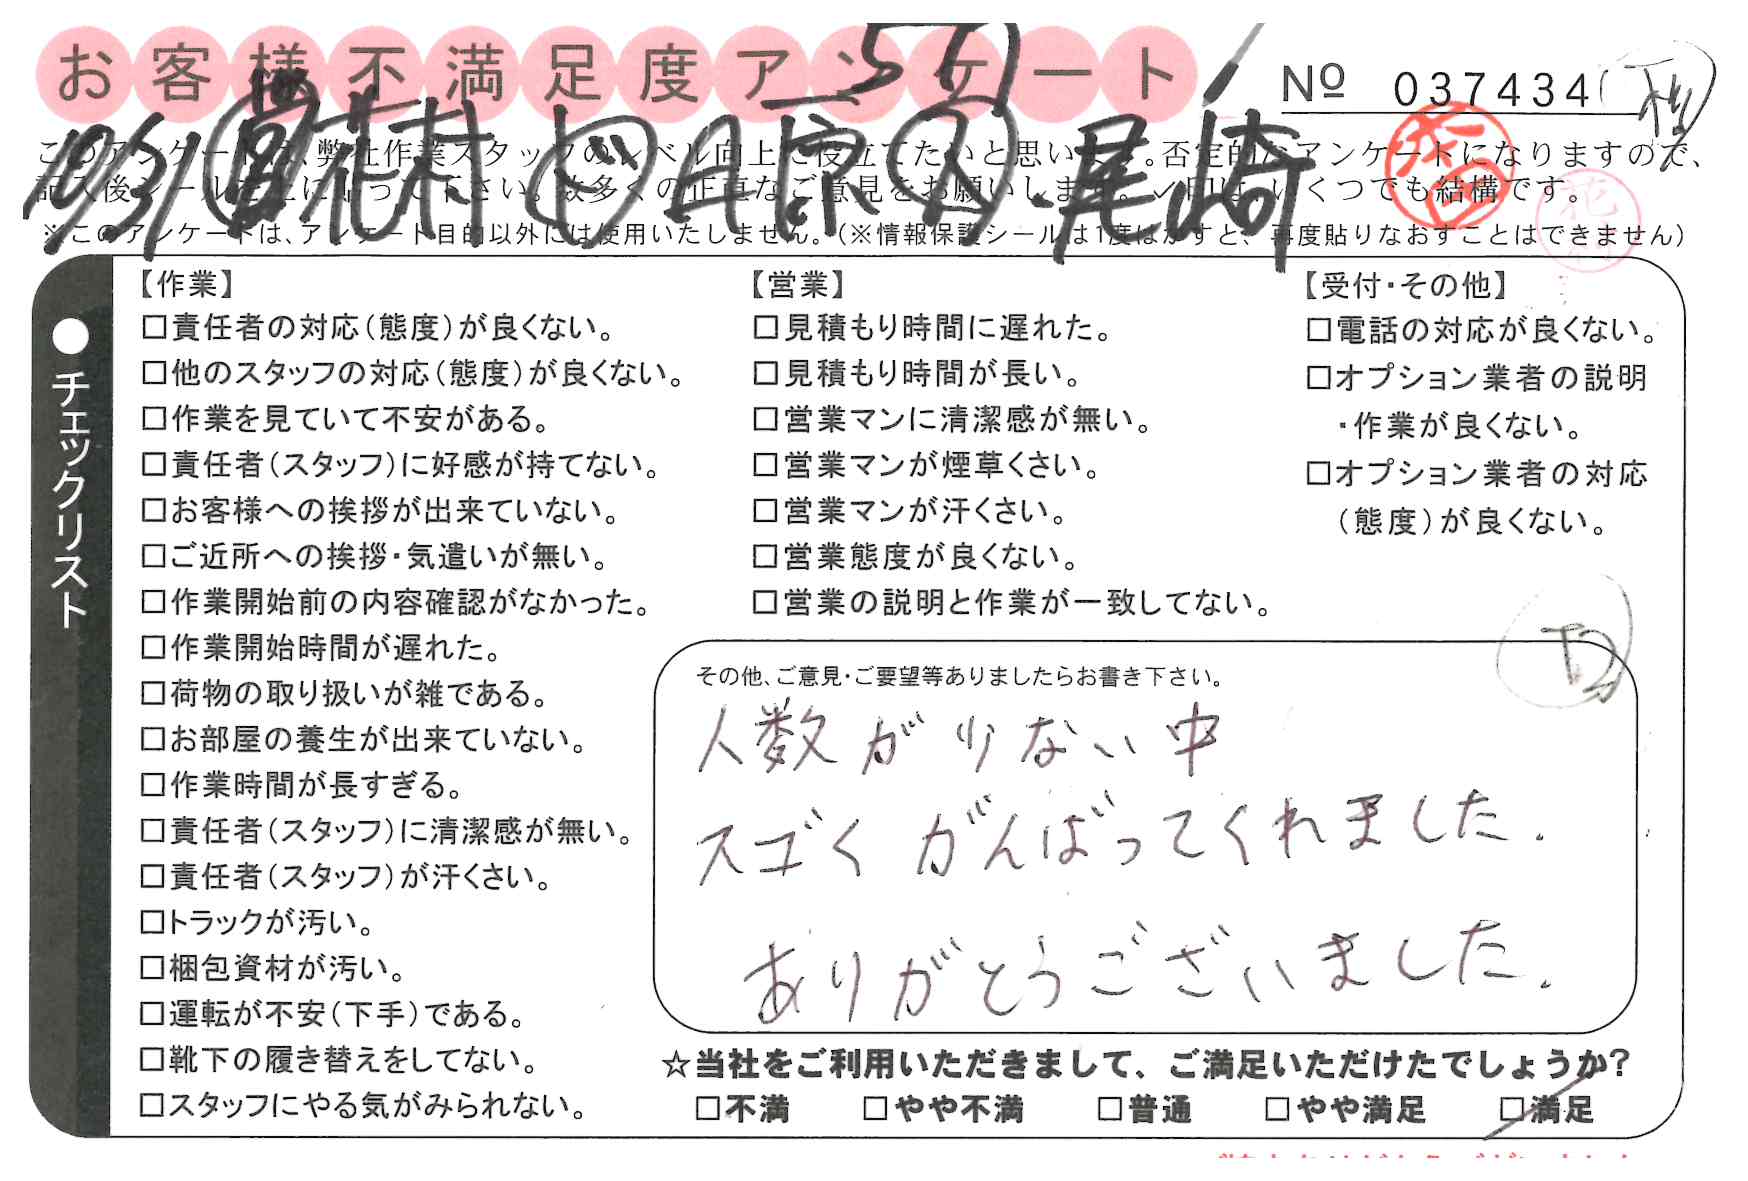 お客様不満足度アンケート
№ 037434
このアンケートは、弊社作業スタッフのレベル向上に役立てたいと思います。否定的なアンケートになりますので、
記入後シールを上に貼って下さい。数多くの正直なご意見をお願いします。レ印は、いくつでも結構です。
※このアンケートは、アンケート目的以外には使用いたしません。(※情報保護シールは1度はがすと、再度貼りなおすことはできません)
10/31 花村 日原 尾崎
●チェックリスト
【作業】
□責任者の対応(態度)が良くない。
□他のスタッフの対応(態度)が良くない。
□作業を見ていて不安がある。
□責任者(スタッフ)に好感が持てない。
□お客様への挨拶が出来ていない。
□ご近所への挨拶・気遣いが無い。
□作業開始前の内容確認がなかった。
□作業開始時間が遅れた。
□荷物の取り扱いが雑である。
□お部屋の養生が出来ていない。
□作業時間が長すぎる。
□責任者(スタッフ)に清潔感が無い。
□責任者(スタッフ)が汗くさい。
□トラックが汚い。
□梱包資材が汚い。
□運転が不安(下手)である。
□靴下の履き替えをしてない。
□スタッフにやる気がみられない。
【営業】
□見積もり時間に遅れた。
□見積もり時間が長い。
□営業マンに清潔感が無い。
□営業マンが煙草くさい。
□営業マンが汗くさい。
□営業態度が良くない。
□営業の説明と作業が一致してない。
【受付・その他】
□電話の対応が良くない。
□オプション業者の説明
・作業が良くない。
□オプション業者の対応
(態度)が良くない。
その他、ご意見・ご要望等ありましたらお書き下さい。
人数が少ない中
スゴく がんばってくれました.
ありがとうございました.
☆当社をご利用いただきまして、ご満足いただけたでしょうか?
□不満 □やや不満 □普通 □やや満足 □満足